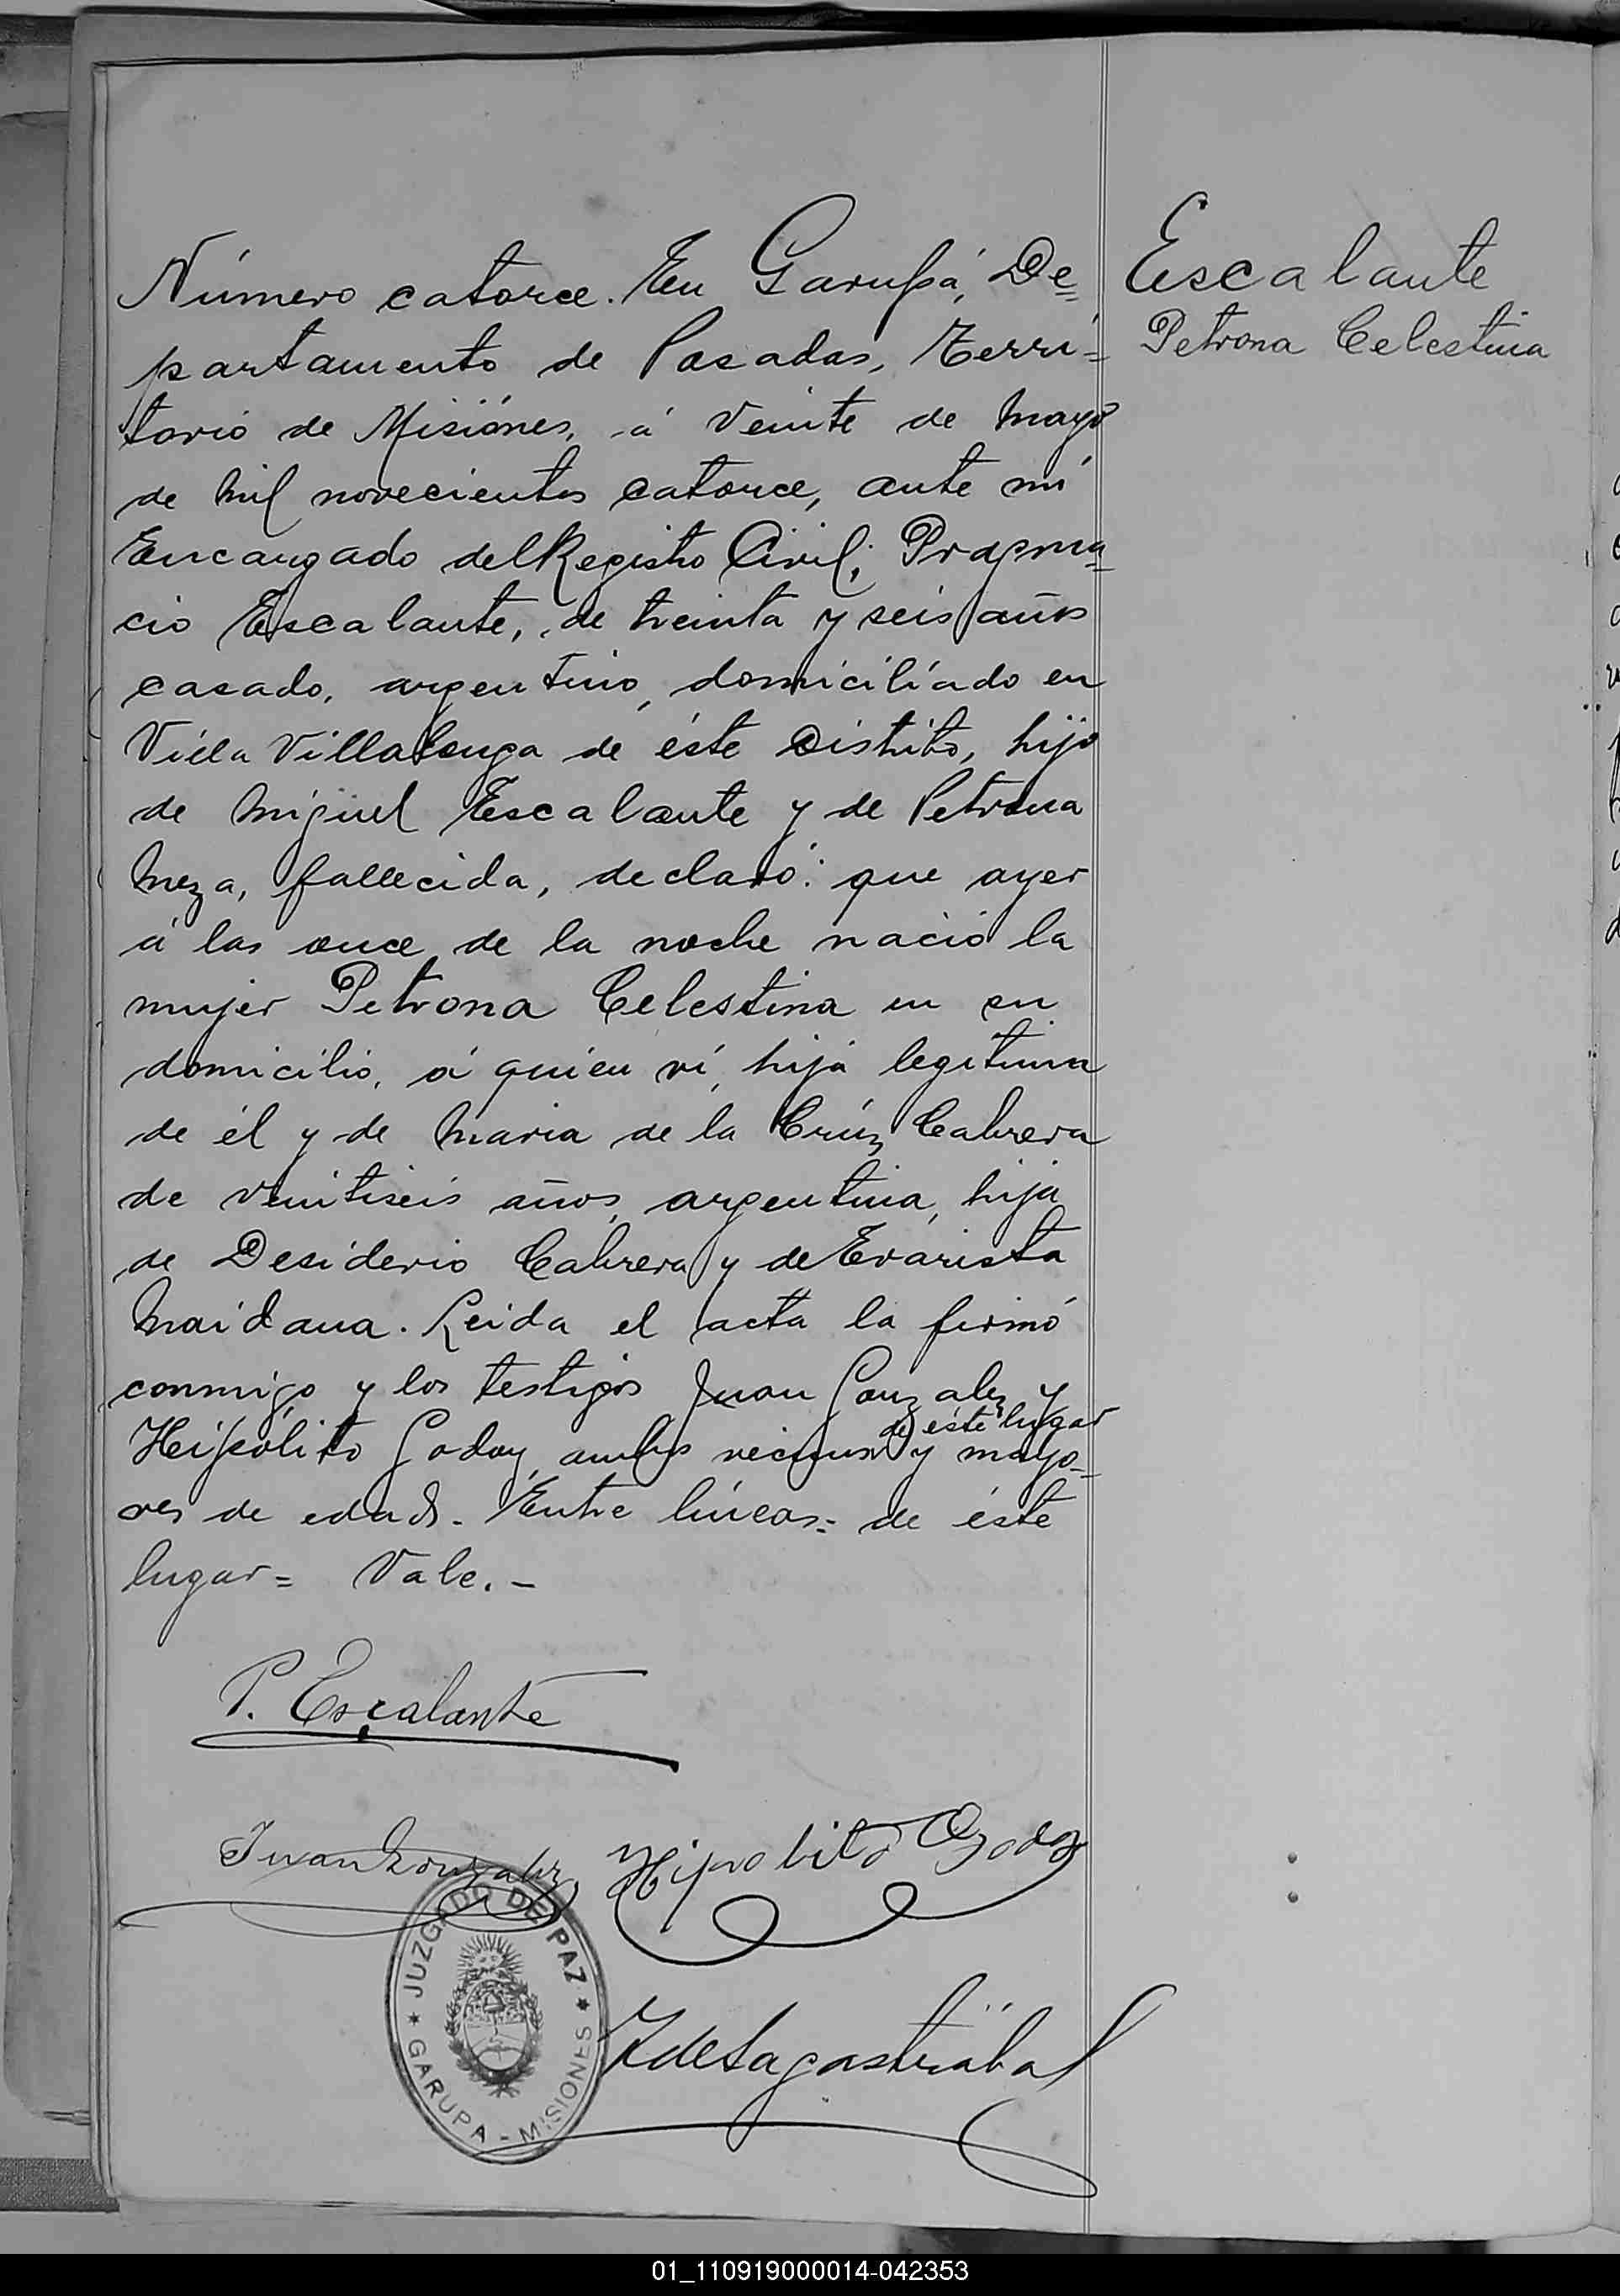 Número catorce. En Garupá, De=
partamento de Posadas, Terri=
torio de Misiónes, á veinte de mayo
de mil novecientos catorce, ante mí
Encargado del Registro Civil; Pragma=
cio Escalante, de treinta y seis años
casado, argentino, domiciliado en
Villa Villalonga de éste Distrito, hijo
de Miguel Escalante y de Petrona
Meza, fallecida, declaró: que ayer
á las once de la noche nació la
mujer Petrona Celestina en su
domicilio, á quien ví, hija legitima
de él y de Maria de la Crúz Cabrera
de veintiseis años, argentina, hija
de Desiderio Cabrera y de Evarista
Maidana. Leida el acta la firmó
conmigo y los testigos Juan Gonzalez y
de éste lugar
Heipólito Godoy, ambos vecinos y mayo=
res de edad. Entre líneas: de éste
lugar = Vale. -
Escalante
Petrona Celestina
P. Escalante
Juan Gonzalez
Hipolito Godoy
JUZGADO DE PAZ
GARUPA - MISIONES
01_110919000014-042353